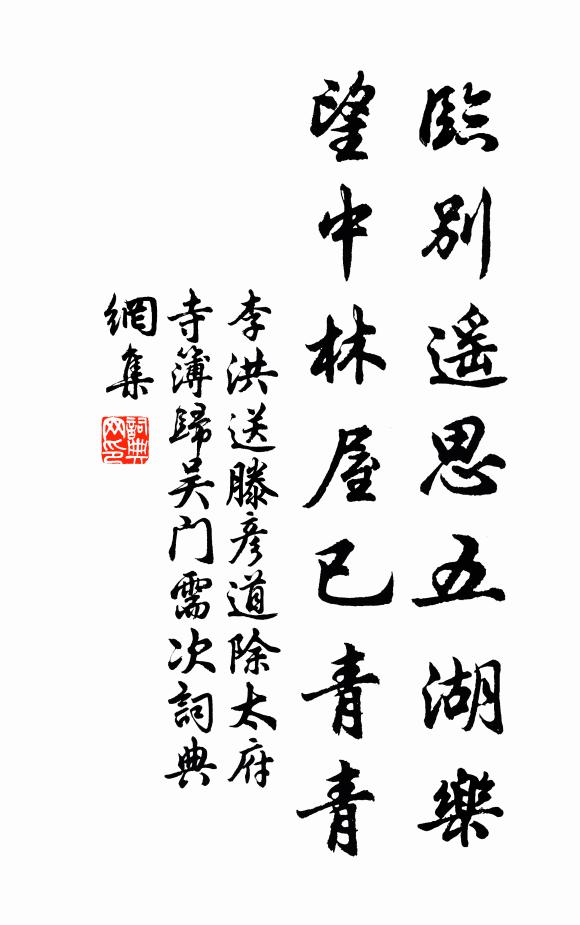 臨別遥思五湖樂
望中林屋已青青
李洪送滕彦道除太府
寺簿歸吴門需次詞典
網集
詞典网印